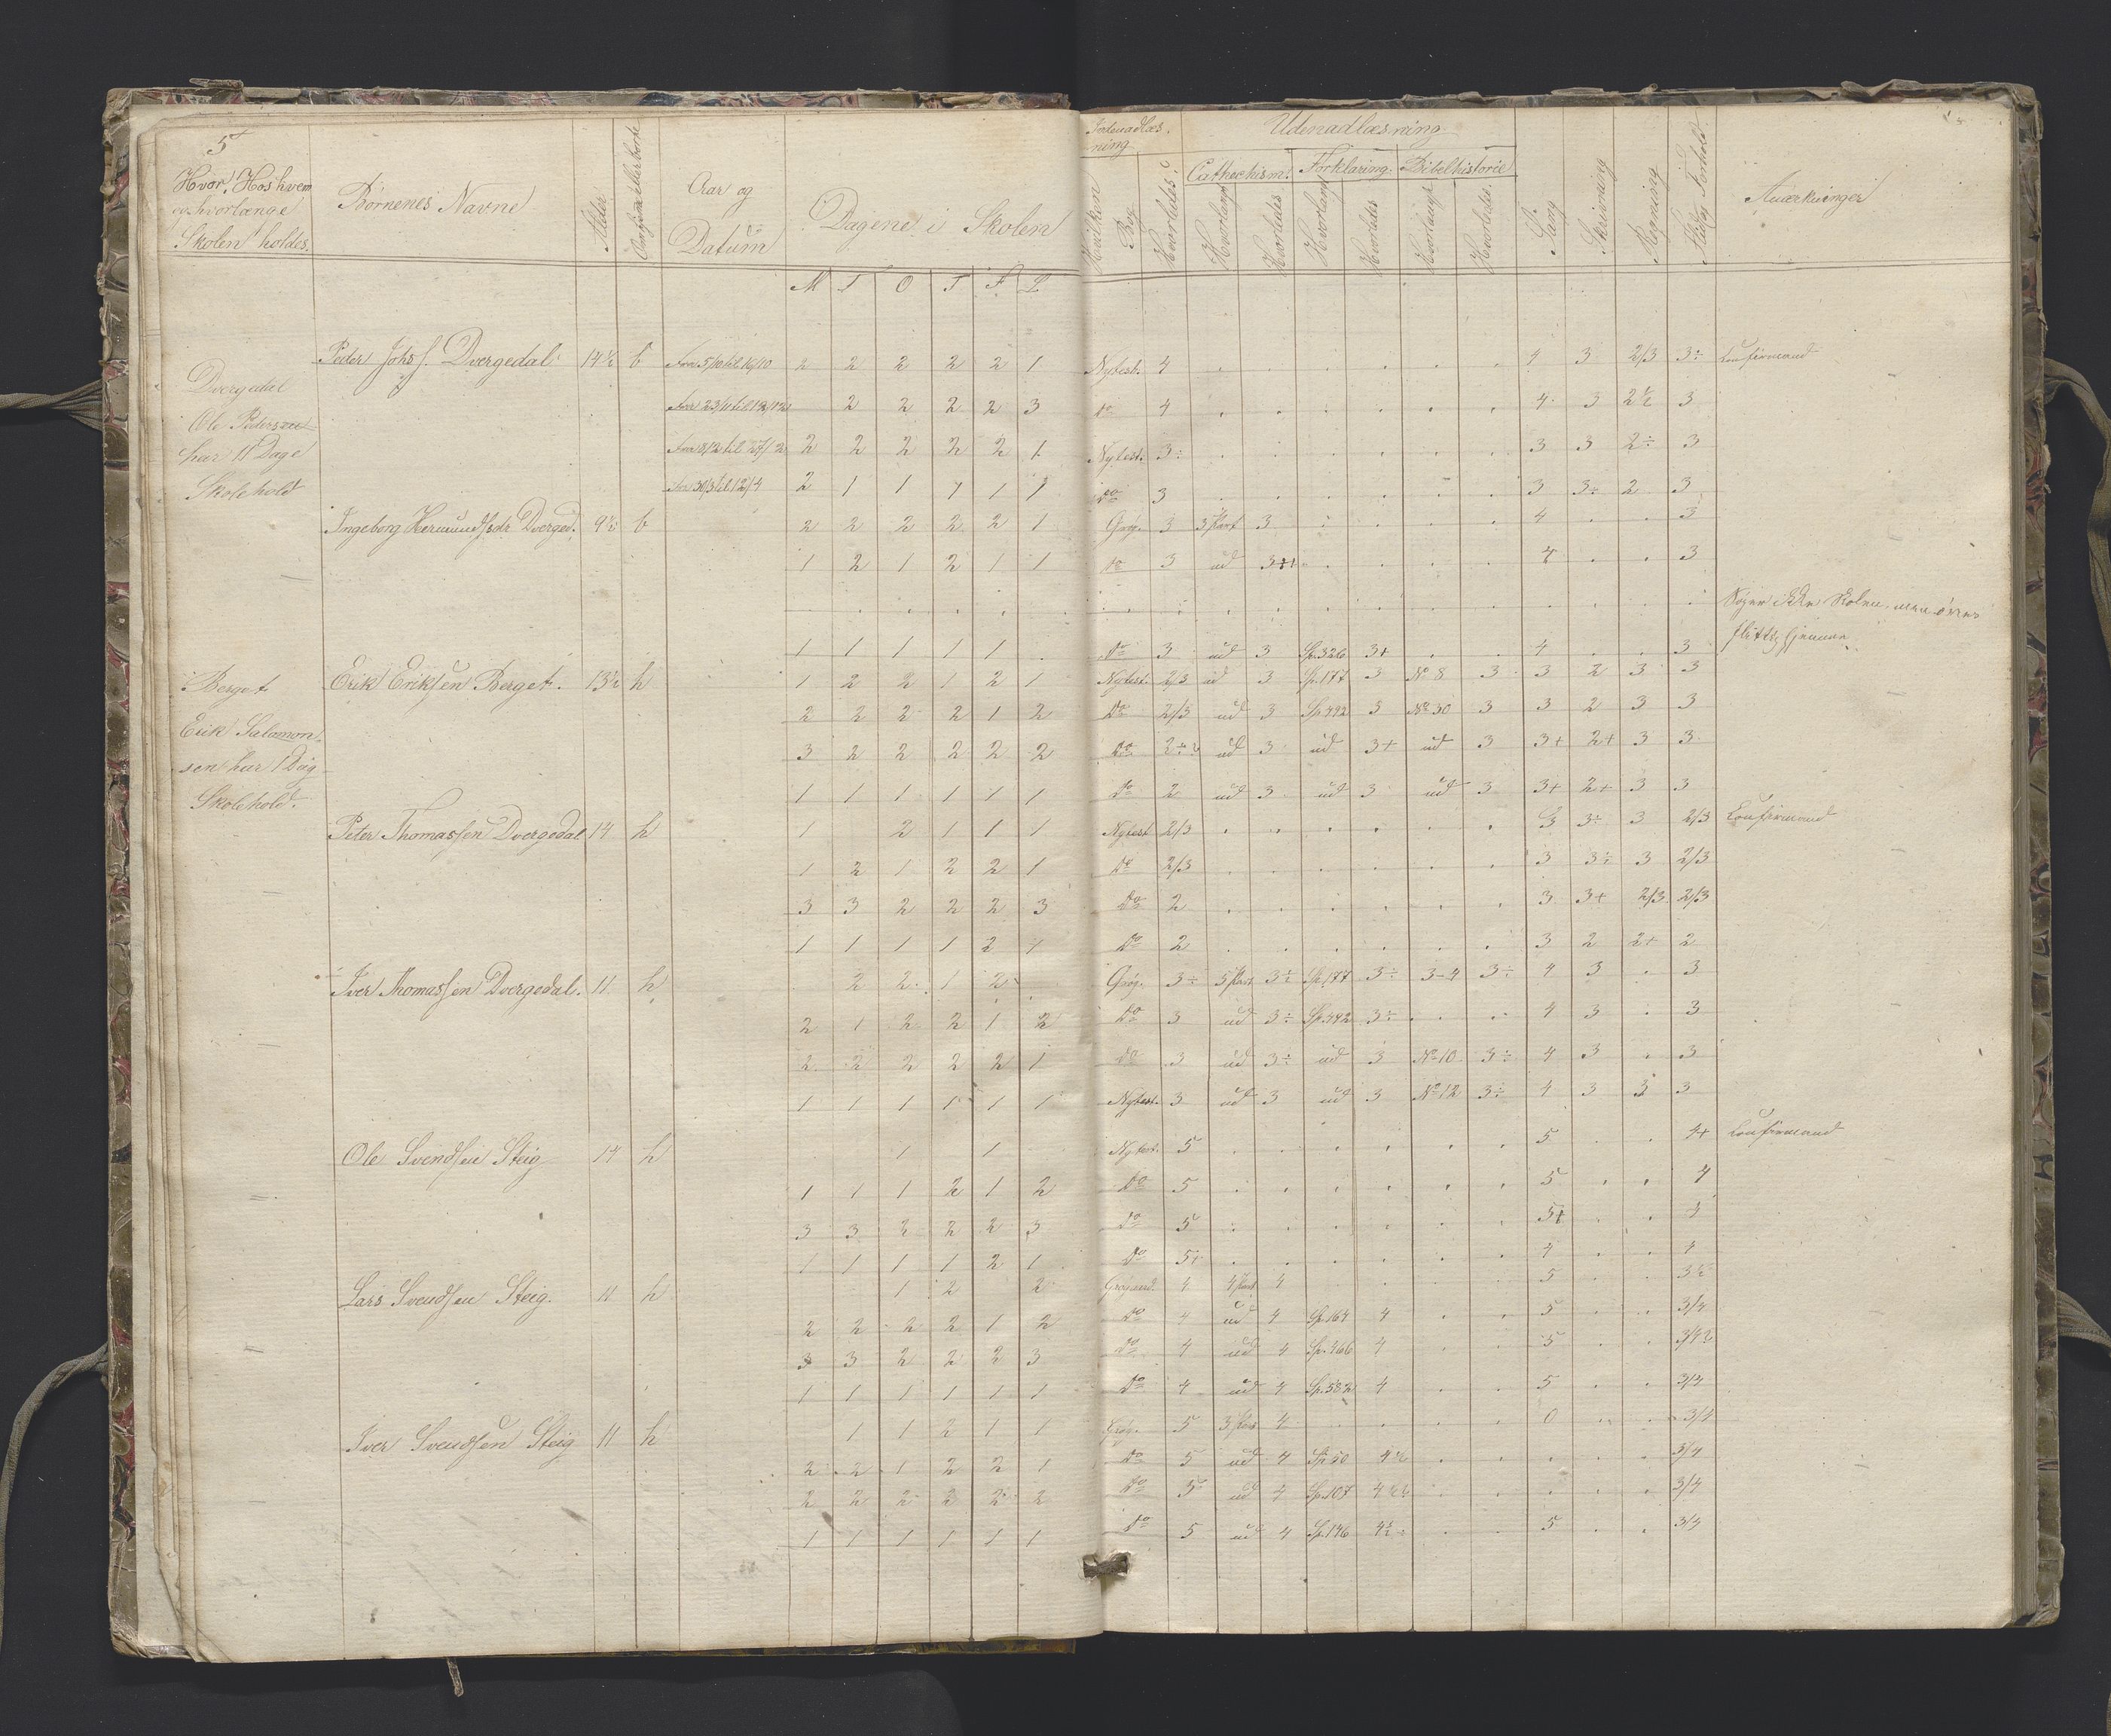 5
Hvor, Hos hvem
og hvorlænge
Skolen holdes.
Børnenes Navne
Alder
Aar og
Datum
Dagene i Skolen
Indenadlæs-
ning
Hvilken
Bog
Hvorledes
Udenadlæsning
Cathechism:
Forklaring
Bibelhistorie
Hvorlangt
Hvorledes
Hvorlangt
Hvorledes
Hvorlangt
Hvorledes
Sang
Skrivning
Regning
Flid og Forhold
Anærkninger
M T O T F L
Peder Johs f. Dvergedal 14½ b Fra 5/10 til 16/10 2 2 2 2 2 1 Nytest. 4 . . . . . . 4 3 2/3 3÷ Confirmand
Dvergedal
Fra 23/11 til 12/12 2 2 2 2 3 do 4 . . . . . . 4 3 2½ 3
Ole Pedersen
har 11 Dage
2 2 2 2 2 1 Nytest. 3÷ . . . . . . 3 3 2÷ 3
Skolehold
Fra 30/3 til 12/4 2 1 1 1 1 1 do 3 . . . . . . 3 3÷ 2 3
Ingeborg Hermundsdr Dverged. 9½ b 2 2 2 2 2 1 Grøg. 3 3 Part 3 . . . . 4 . . 3
1 2 1 2 1 1 do 3 ud . . . . 4 . . 3
Søger ikke Skolen, men
1 1 1 1 1 . do 3 ud 3 Sp. 326 3+ . . 4 . . 3
Berget
Erik Eriksen Berget. 13½ h 1 2 2 1 2 1 Nytest. 2/3 ud 3 Sp. 177 3 No 8 3 3 2 3 3
Erik Salomon-
2 2 2 2 1 2 Do 2/3 ud 3 Sp 492 3 No 30 3 3 2 3 3
sen har 1 Dag
3 2 2 2 2 2 Do ud 3 ud 3+ ud 3 3+ 2+ 3 3
Skolehold.
1 1 1 1 1 1 do 2 ud 3 ud 3 ud 3 3+ 2+ 3 3
Peter Thomassen Dvergedal 14 h 1 2 1 1 1 Nytest 2/3 . . . . . . 3 3÷ 3 2/3 Confirmand
1 2 1 2 2 1 do 2/3 . . . . . . 3 3÷ 3 2/3
3 3 2 2 2 3 Do 2 . . . . . . 3 3+ 2/3 2/3
1 1 1 1 2 1 do 2 . . . . . . 3 2 2+ 2
Iver Thomassen Dvergedal. 11 h 2 2 1 2 Grøg. 3÷ 5 Part 3÷ Sp. 177 3÷ 3-4 3÷ 4 3 . 3
2 1 2 2 1 2 Do 3 ud 3÷ Sp. 442 3÷ . . 4 3 . 3
2 2 2 2 2 1 do 3 ud 3÷ ud 3 No 10 3÷ 4 3 . 3
1 1 1 1 1 1 Nytest. 3 ud 3 ud 3 No 12 3÷ 4 3 3 3
Ole Svendsen Steig 14 h 1 1 Nytest. 5 . . . . . . 5 . . 4+ Confirmand
1 1 1 2 1 2 do 5 . . . . . . 5 . . 4
3 3 2 2 2 3 do 5 . . . . . . 5+ . . 4
1 1 1 1 2 1 do 5+ . . . . . . 4 . . 4
Lars Svendsen Steig. 11 h 1 2 2 4 4 Part 4 . . . . 5 . . 3½
2 2 2 2 1 2 do 4 ud 4 Sp. 164 4 . . 5 . . 3/4
3 3 2 2 2 3 do 4 ud 4 Sp. 466 4 . . 5 . .
1 1 1 1 1 1 do 4 ud 4 Sp. 582 4 . . 5 . . 3/4
Iver Svendsen Steig 11 h 1 1 2 1 1 Grøg. 5 3 Part 4 . . . . 0 . . 3/4
2 2 1 2 2 1 do 5 ud 4 Sp 50 4½ . . . . . 3/4
2 2 2 2 2 2 do 5 ud 4 Sp. 107 . . . . . 3/4
1 1 1 1 1 1 do 5 ud 4 Sp. 146 4½ . . 5 . . 3/4